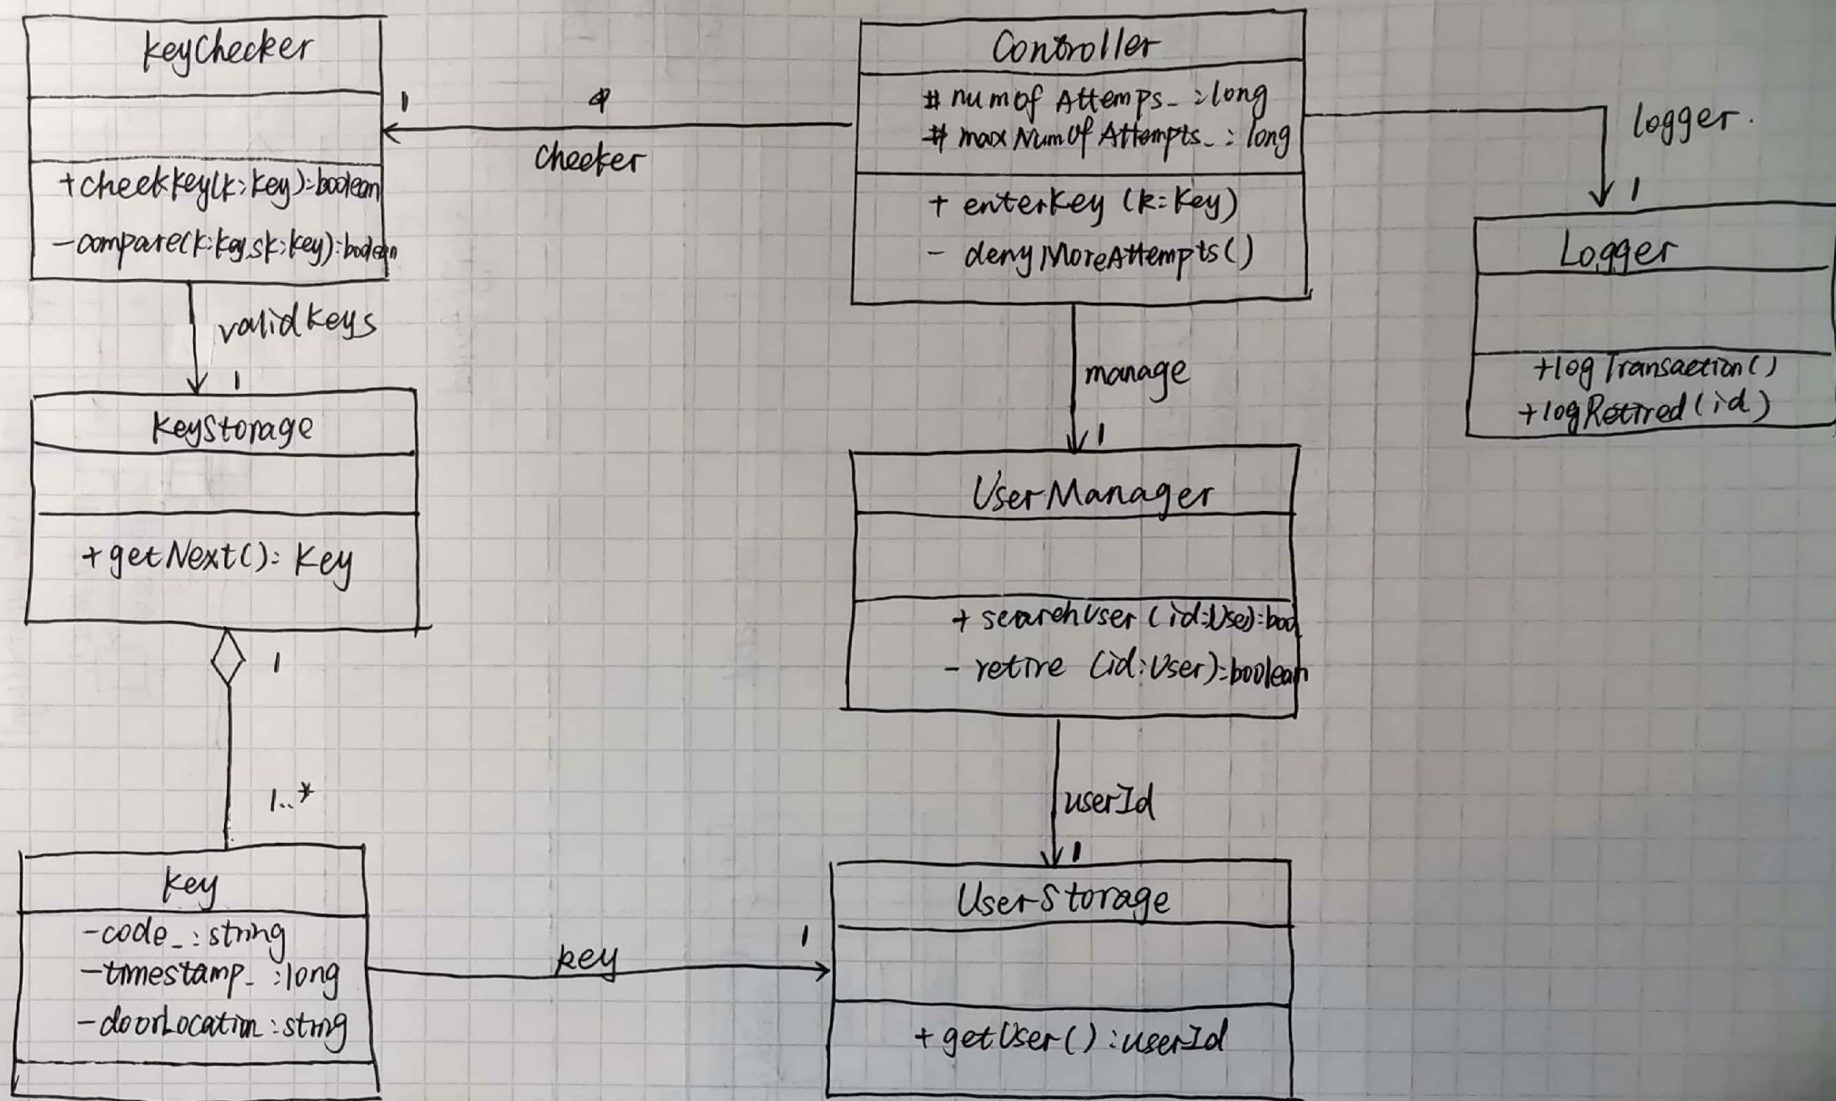 KeyChecker
+checkKey(k:Key):boolean
-compare(k:Key,sk:Key):boolean
1
checker
Controller
# numOfAttemps_:long
# maxNumOfAttempts_:long
+ enterKey (k:Key)
- denyMoreAttempts()
logger.
1
Logger
+logTransaction()
+logRetired(id)
validKeys
1
KeyStorage
+getNext(): Key
1
1..*
manage
1
UserManager
+ searchUser (id:User):bool
- retire (id:User):boolean
userId
1
Key
-code_:string
-timestamp_:long
-doorLocation:string
key
1
UserStorage
+getUser():userId